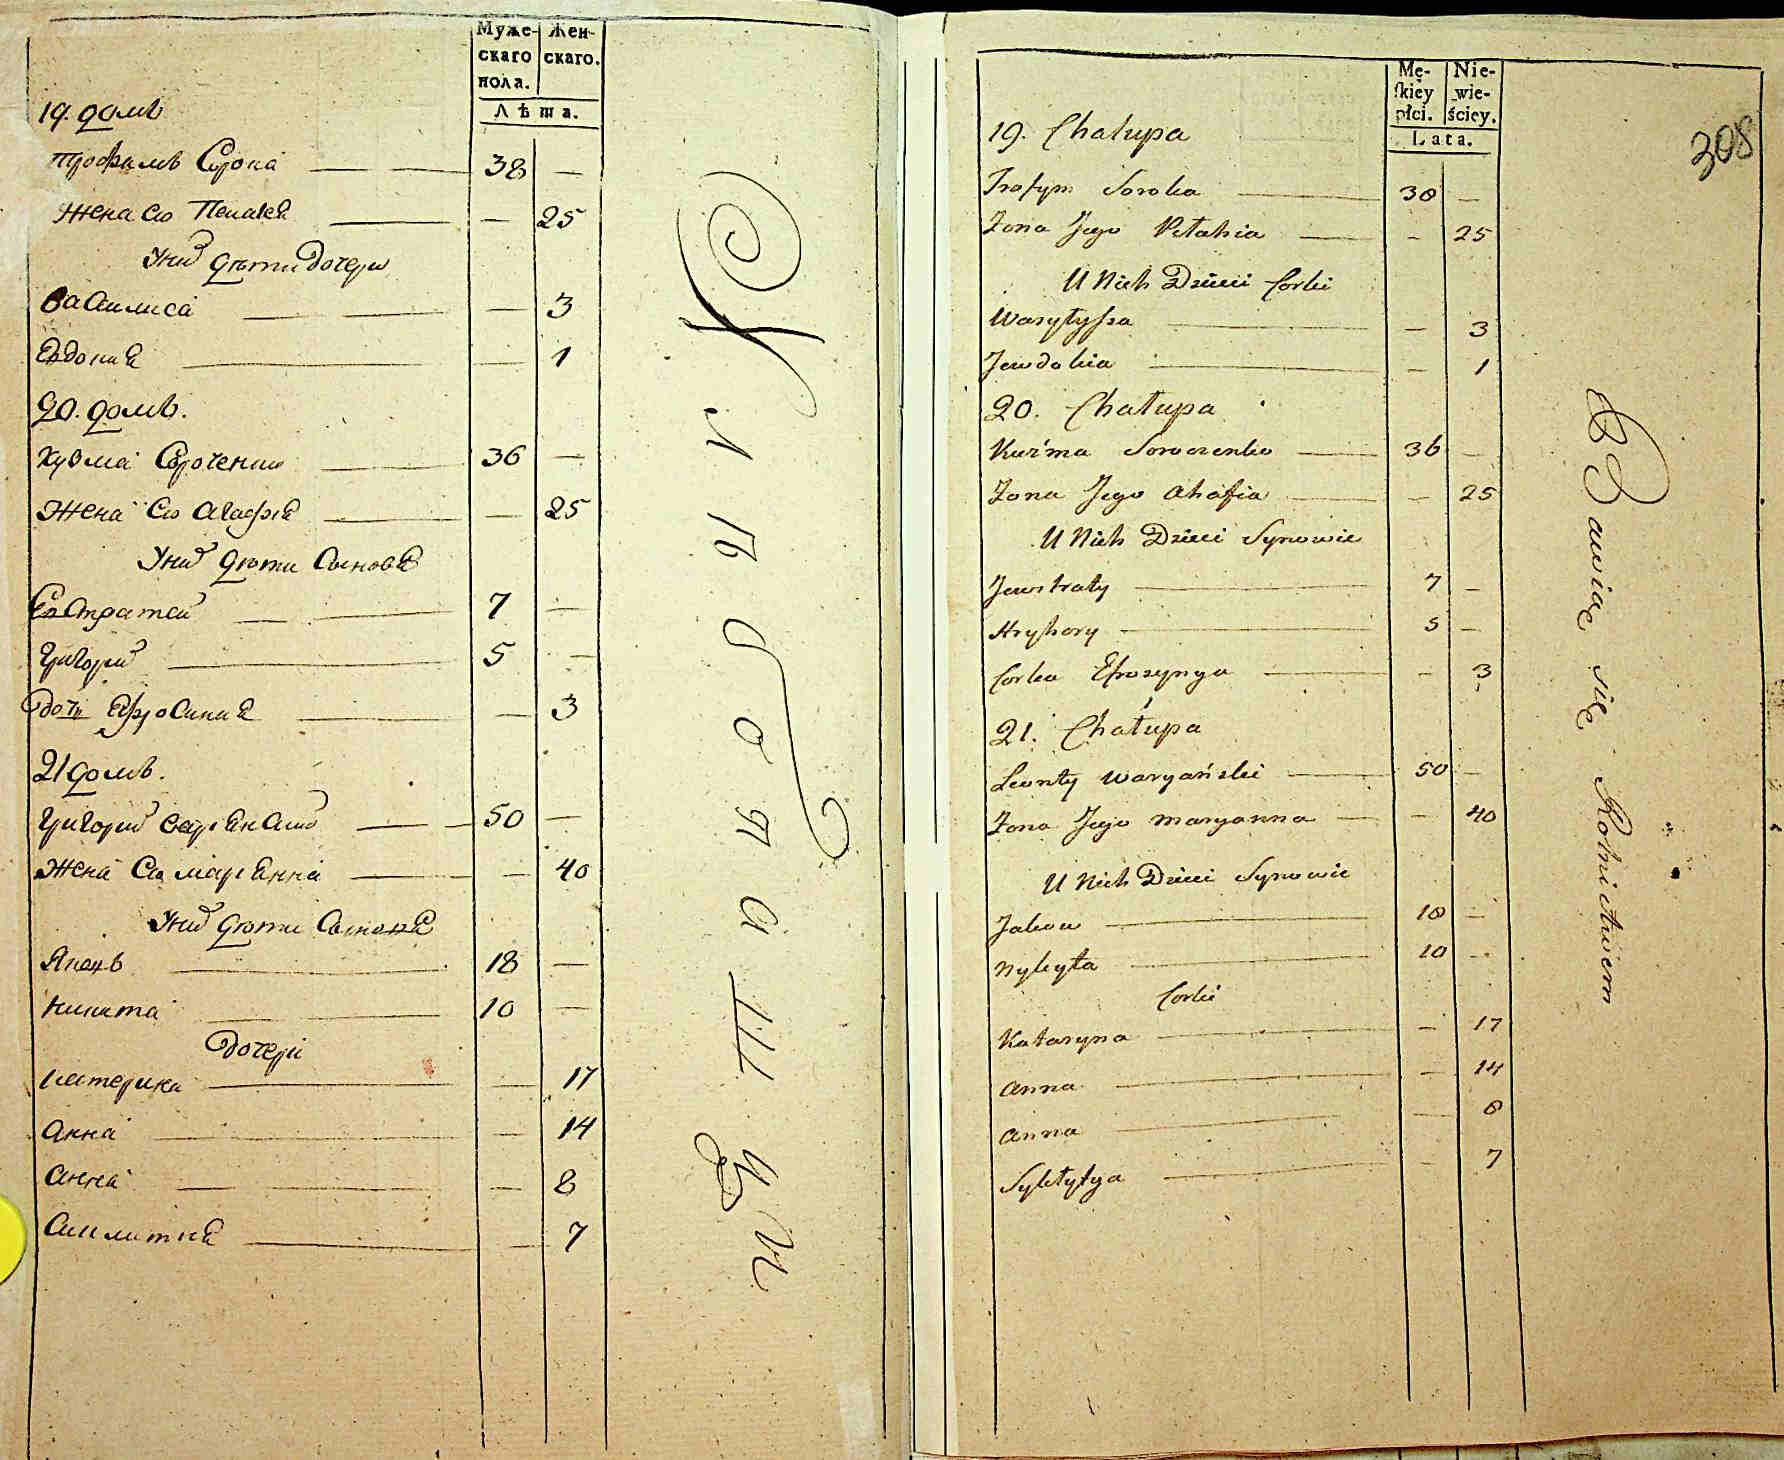 Муже-
скаго
пола.
Жен-
скаго.
Лѣта.
19. домъ
Трофимъ Сорока 38 —
Жена Ево Пелагея — 25
У нихъ дети дочери
Василиса — 3
Евдокия — 1
20. домъ.
Кузма Сороченко 36 —
Жена Ево Агафия — 25
У нихъ дети Сыновья
Евстратей 7 —
Григорий 5 —
дочь Афросиния — 3
21 домъ.
Григорий 50 —
Жена Ево Марианна — 40
У нихъ дети Сыновья
Яковъ 18 —
Никита 10 —
дочери
Катерина — 17
Анна — 14
Анна — 8
— 7
Хлебопашцы
308
Mę-
skiey
płci.
Nie-
wie-
ściey.
Lata.
19. Chałupa
Trofym Soroka 38 —
Zona Jego Pełahia — 25
U Nich Dzieci Corki
Wasylyssa — 3
Jewdokia — 1
20. Chałupa
Kuźma Soroczenko 36 —
Zona Jego Ahafia — 25
U Nich Dzieci Synowie
Jewstraty 7 —
Hryhory 5 —
Corka Efrozynya — 3
21. Chałupa
Leonty Waryański 50 —
Zona Jego Maryanna — 40
U Nich Dzieci Synowie
Jakow 18 —
Nykyta 10 —
Corki
Kataryna — 17
Anna — 14
Anna — 8
Sykłytya — 7
Bawiąc się Rolnictwem